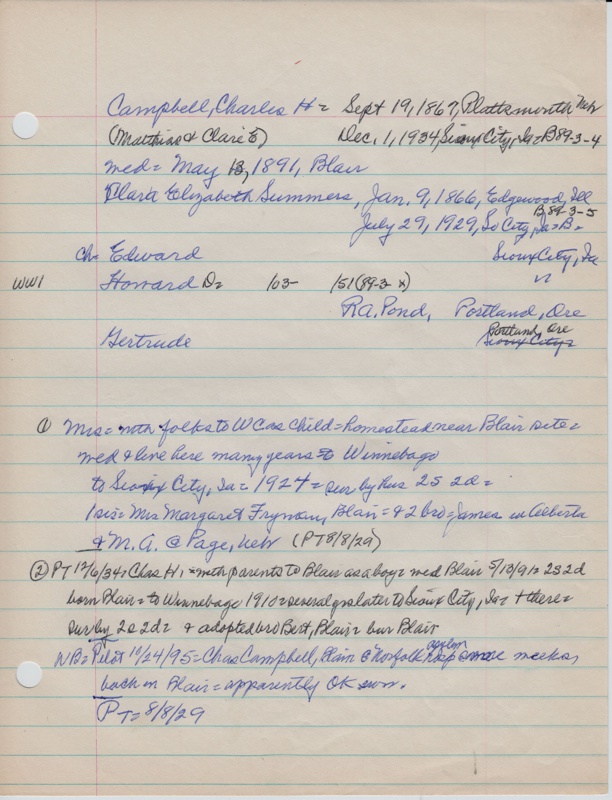 Campbell, Charles H = Sept 19, 1867, Plattsmouth Neb
(Matthias & Clare E) Dec. 1, 1934, Sioux City, Ia = B 89-3-4
wed = May 13, 1891, Blair
Clara Elizabeth Summers, Jan. 9, 1866, Edgewood, Ill
B, 89-3-5
July 29, 1929, So City, Ia = B =
ch = Edward Sioux City, Ia
WW1 Howard D = 103- 151 (89-3 x) "
R.A. Pond, Portland, Ore
Portland, Ore
Gertrude Sioux City =
① Mrs = with folks to WC as child = homestead near Blair site =
wed & live here many years = to Winnebago
to Sioux City, Ia = 1924 = sur by hus 2s 2d =
1 sis = Mrs Margaret Fryman, Blair = & 2 bro = James in Alberta
& M. A. @ Page, Neb (PT 8/8/29)
② PT 12/6/34 = Chas H, = with parents to Blair as a boy = wed Blair 5/13/91 = 2s 2d
born Blair = to Winnebago 1910 = several yrs later to Sioux City, Ia = & there =
sur by 2s 2d = & adopted bro Bert, Blair = bur Blair
WB = Pilot 10/24/95 = Chas Campbell, Blair @ Norfolk asylum some weeks,
back in Blair = apparently OK now.
PT = 8/8/29